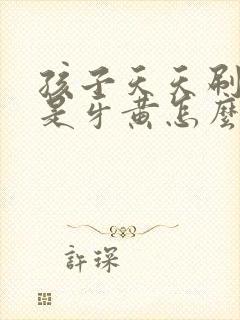 孩子天天刷
是牙黄怎麼
許琛